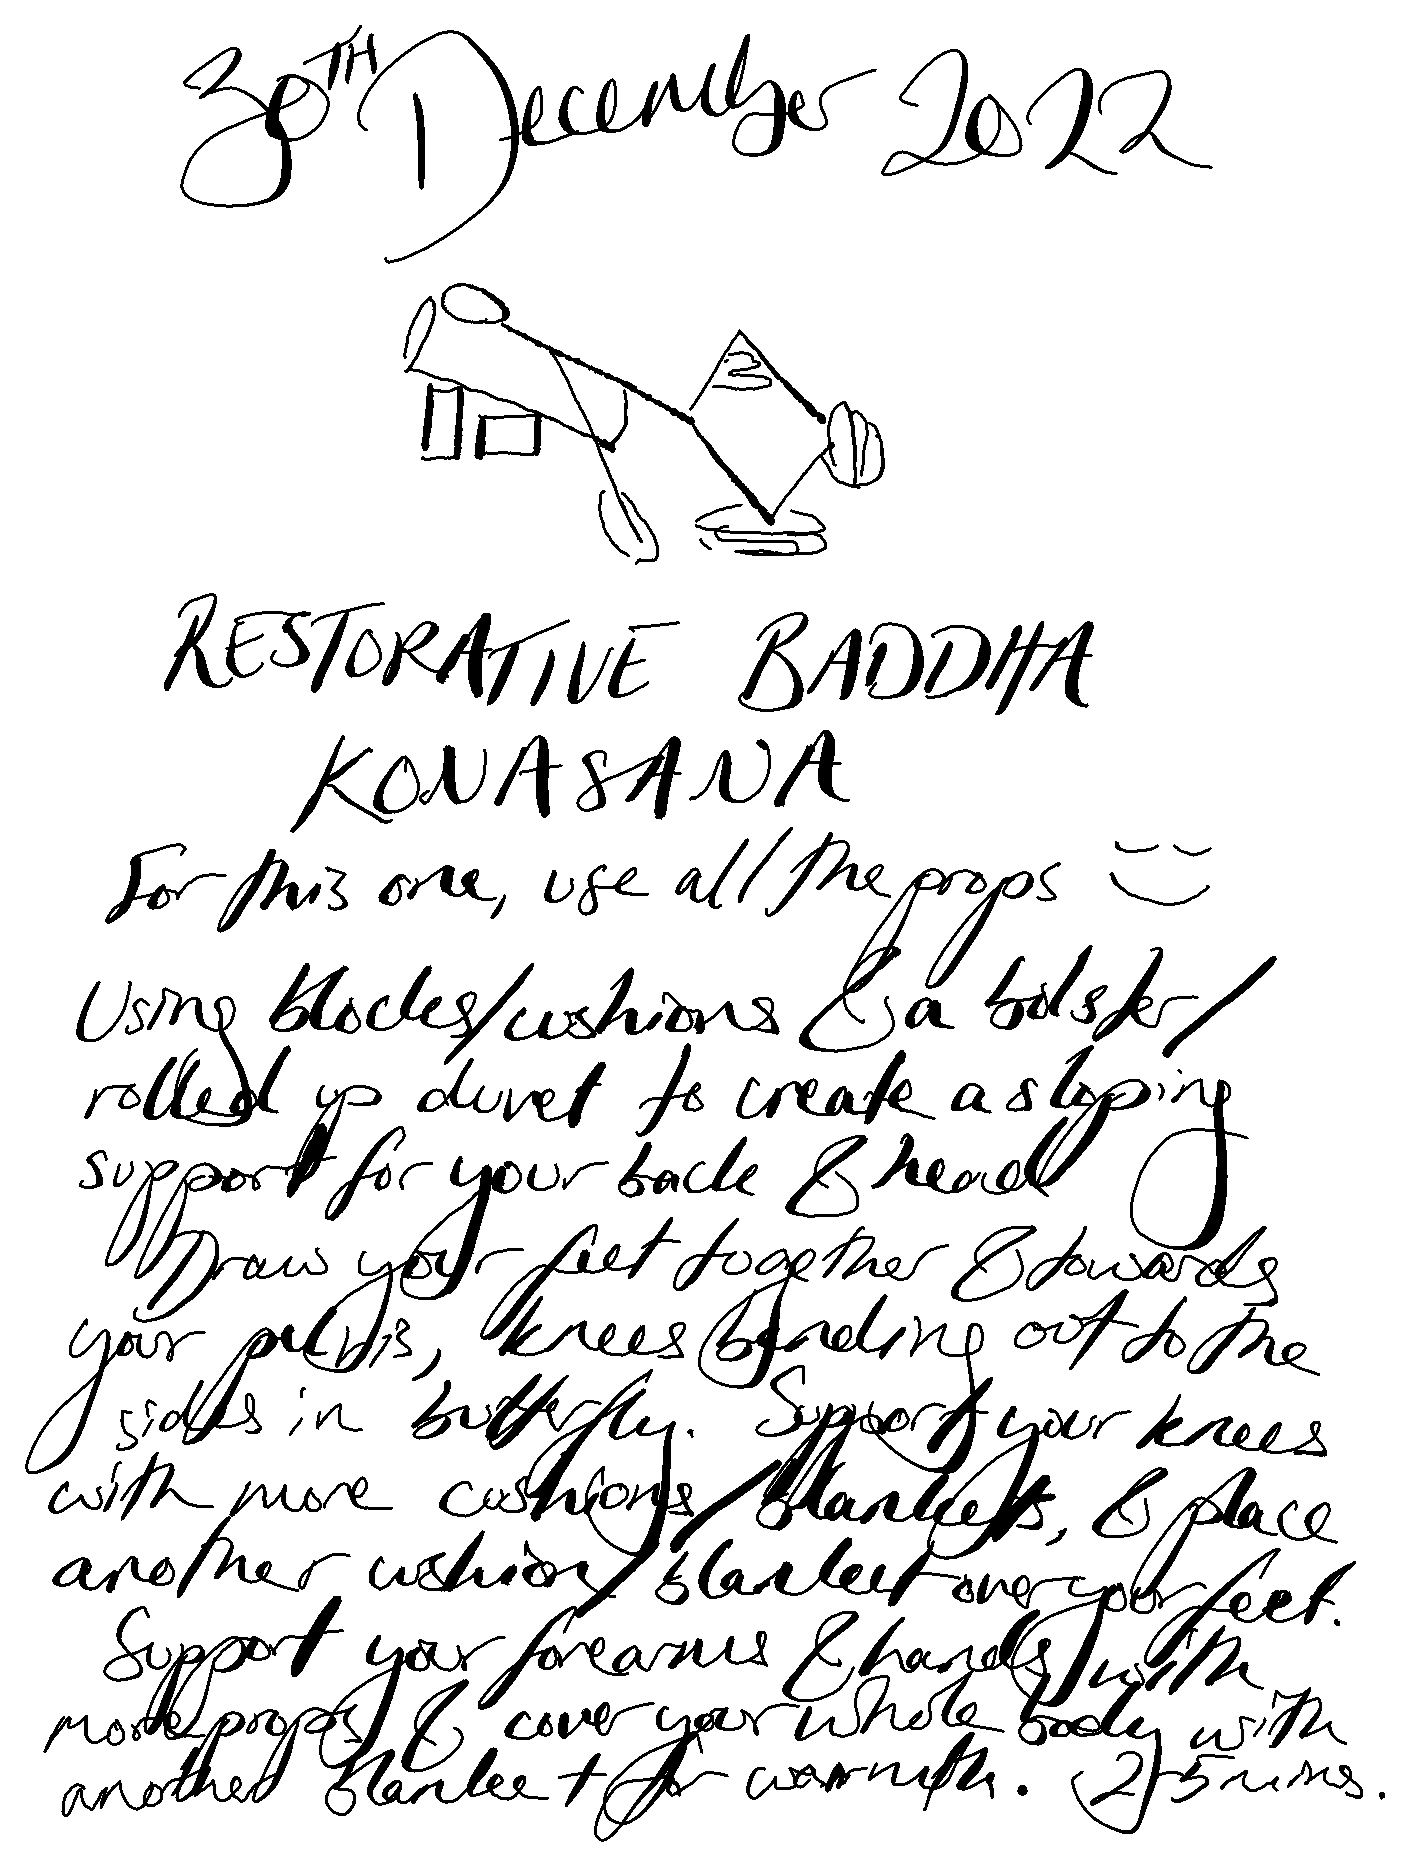 30TH December 2022
RESTORATIVE BADDHA
KONASANA
For this one, use all the props
Using blocks/cushions & a bolster/
rolled up duvet to create a sloping
support for your back & head
Draw your feet together & towards
your pelvis, knees bending out to the
sides in butterfly. Support your knees
with more cushions/blankets, & place
another cushion/blanket over your feet.
Support your forearms & hands with
more props & cover your whole body with
another blanket for warmth. 2-5 mins.